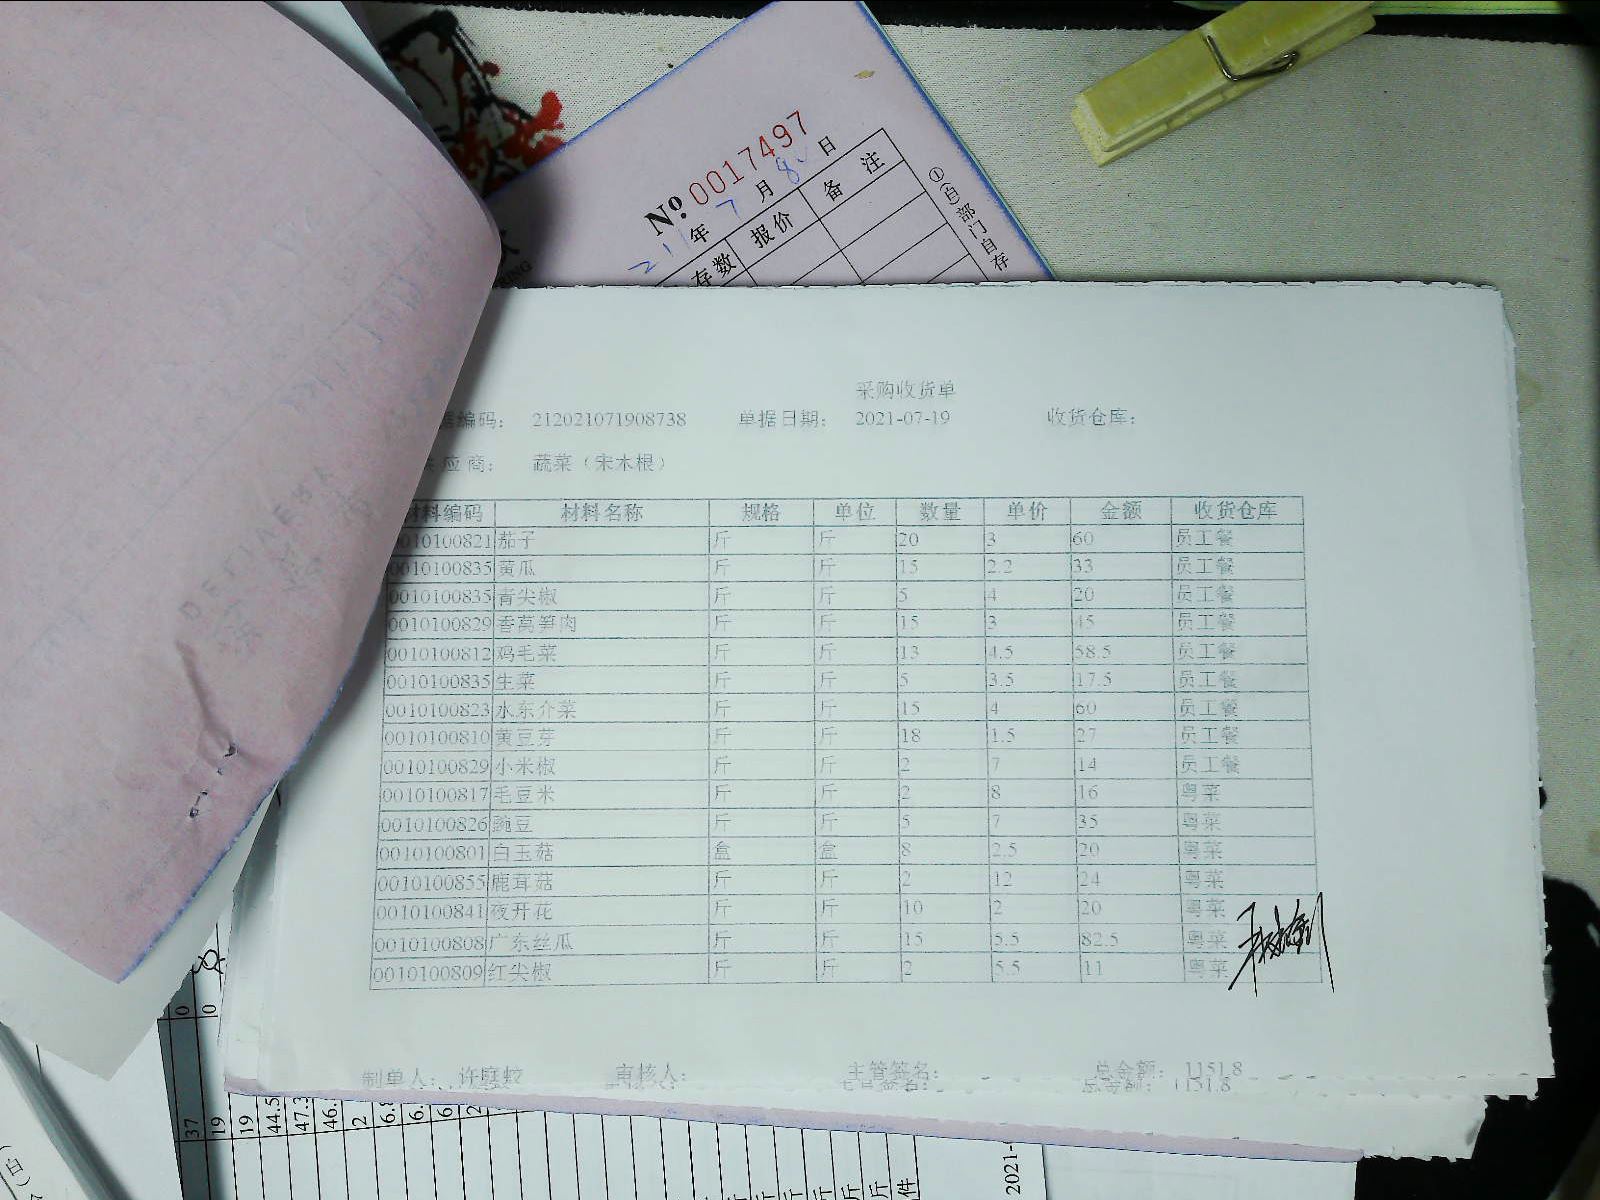 № 0017497
21年7月8日
存数 报价 备注
①(白)部门自存
采购收货单
编码: 212021071908738 单据日期: 2021-07-19 收货仓库:
应商: 蔬菜（宋木根）
材料编码 材料名称 规格 单位 数量 单价 金额 收货仓库
0010100821 茄子 斤 斤 20 3 60 员工餐
0010100835 黄瓜 斤 斤 15 2.2 33 员工餐
0010100835 青尖椒 斤 斤 5 4 20 员工餐
0010100829 香莴笋肉 斤 斤 15 3 45 员工餐
0010100812 鸡毛菜 斤 斤 13 4.5 58.5 员工餐
0010100835 生菜 斤 斤 5 3.5 17.5 员工餐
0010100823 水东介菜 斤 斤 15 4 60 员工餐
0010100810 黄豆芽 斤 斤 18 1.5 27 员工餐
0010100829 小米椒 斤 斤 2 7 14 员工餐
0010100817 毛豆米 斤 斤 2 8 16 粤菜
0010100826 豌豆 斤 斤 5 7 35 粤菜
0010100801 白玉菇 盒 盒 8 2.5 20 粤菜
0010100855 鹿茸菇 斤 斤 2 12 24 粤菜
0010100841 夜开花 斤 斤 10 2 20 粤菜
0010100808 广东丝瓜 斤 斤 15 5.5 82.5 粤菜
0010100809 红尖椒 斤 斤 2 5.5 11 粤菜
制单人: 许庭蛟 审核人: 主管签名: 总金额: 1151.8
总金额: 1151.8
37 19 19 44.5 47.3 46. 2 6.8 6. 6 2
斤 斤 斤 斤 斤 斤 件
2021-
(白)